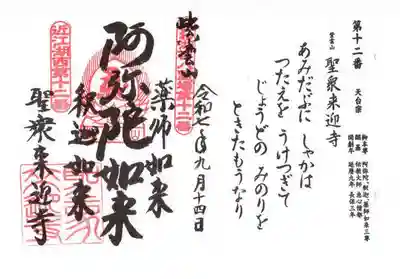 第十二番 天台宗
紫雲山 聖衆来迎寺
御本尊 阿弥陀、釈迦、薬師如来三尊
開基 伝教大師 恵心僧都
開創年 延暦九年 長保三年
あみだぶに しゃかは
つたえを うけつぎて
じょうどの みのりを
ときたもうなり
令和七年九月十四日
紫雲山
薬師如来
阿弥陀如来
釈迦如来
聖衆来迎寺
近江湖西第十二番